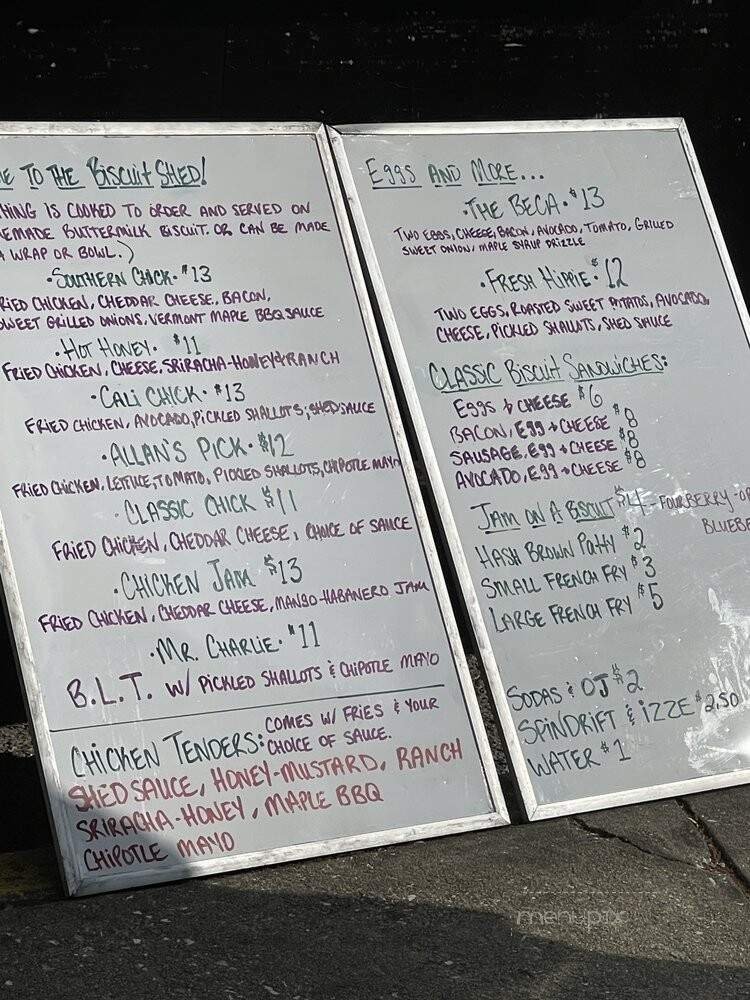 E TO THE BISCUIT SHED!
THING IS COOKED TO ORDER AND SERVED ON
EMADE BUTTERMILK BISCUIT. OR CAN BE MADE
A WRAP OR BOWL.)
· SOUTHERN CHICK · $13
RIED CHICKEN, CHEDDAR CHEESE, BACON,
WEET GRILLED ONIONS, VERMONT MAPLE BBQ SAUCE
· HOT HONEY · $11
FRIED CHICKEN, CHEESE, SRIRACHA-HONEY & RANCH
· CALI CHICK · $13
FRIED CHICKEN, AVOCADO, PICKLED SHALLOTS, SHED SAUCE
· ALLAN'S PICK · $12
FRIED CHICKEN, LETTUCE, TOMATO, PICKLED SHALLOTS, CHIPOTLE MAYO
· CLASSIC CHICK $11
FRIED CHICKEN, CHEDDAR CHEESE, CHOICE OF SAUCE
· CHICKEN JAM $13
FRIED CHICKEN, CHEDDAR CHEESE, MANGO-HABANERO JAM
· MR. CHARLIE · $11
B.L.T. W/ PICKLED SHALLOTS & CHIPOTLE MAYO
CHICKEN TENDERS: COMES W/ FRIES & YOUR
CHOICE OF SAUCE.
SHED SAUCE, HONEY-MUSTARD, RANCH
SRIRACHA-HONEY, MAPLE BBQ
CHIPOTLE MAYO
EGGS AND MORE...
· THE BECA · $13
TWO EGGS, CHEESE, BACON, AVOCADO, TOMATO, GRILLED
SWEET ONION, MAPLE SYRUP DRIZZLE
· FRESH HIPPIE · $12
TWO EGGS, ROASTED SWEET POTATOS, AVOCADO,
CHEESE, PICKLED SHALLOTS, SHED SAUCE
CLASSIC BISCUIT SANDWICHES:
EGGS & CHEESE $6
BACON, EGG + CHEESE $8
SAUSAGE, EGG + CHEESE $8
AVOCADO, EGG + CHEESE $8
JAM ON A BISCUIT $4 - FOURBERRY - OR
BLUEBE
HASH BROWN PATTY $2
SMALL FRENCH FRY $3
LARGE FRENCH FRY $5
SODAS & OJ $2
SPINDRIFT & IZZE $2.50
WATER $1
menupix